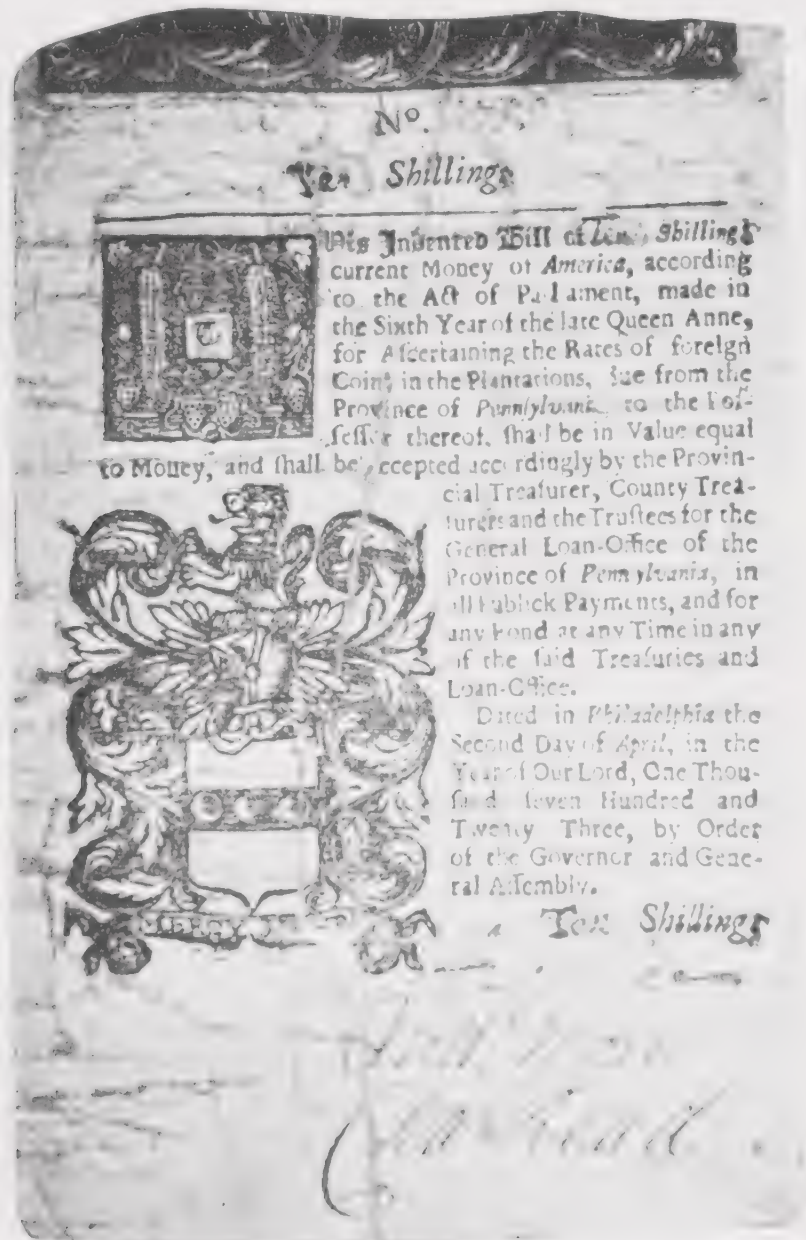 No.
Ten Shillings
THis Indented Bill of Ten Shillings
current Money of America, according
to the Act of Parliament, made in
the Sixth Year of the late Queen Anne,
for Aſcertaining the Rates of foreign
Coins in the Plantations, due from the
Province of Pennſylvania to the Poſ-
ſeſſor thereof, ſhall be in Value equal
to Money, and ſhall be accepted accordingly by the Provin-
cial Treaſurer, County Trea-
ſurers and the Truſtees for the
General Loan-Office of the
Province of Pennſylvania, in
all Publick Payments, and for
any Fond at any Time in any
of the ſaid Treaſuries and
Loan-Office.
Dated in Philadelphia the
Second Day of April, in the
Year of Our Lord, One Thou-
ſand ſeven Hundred and
Twenty Three, by Order
of the Governor and Gene-
ral Aſſembly.
Ten Shillings